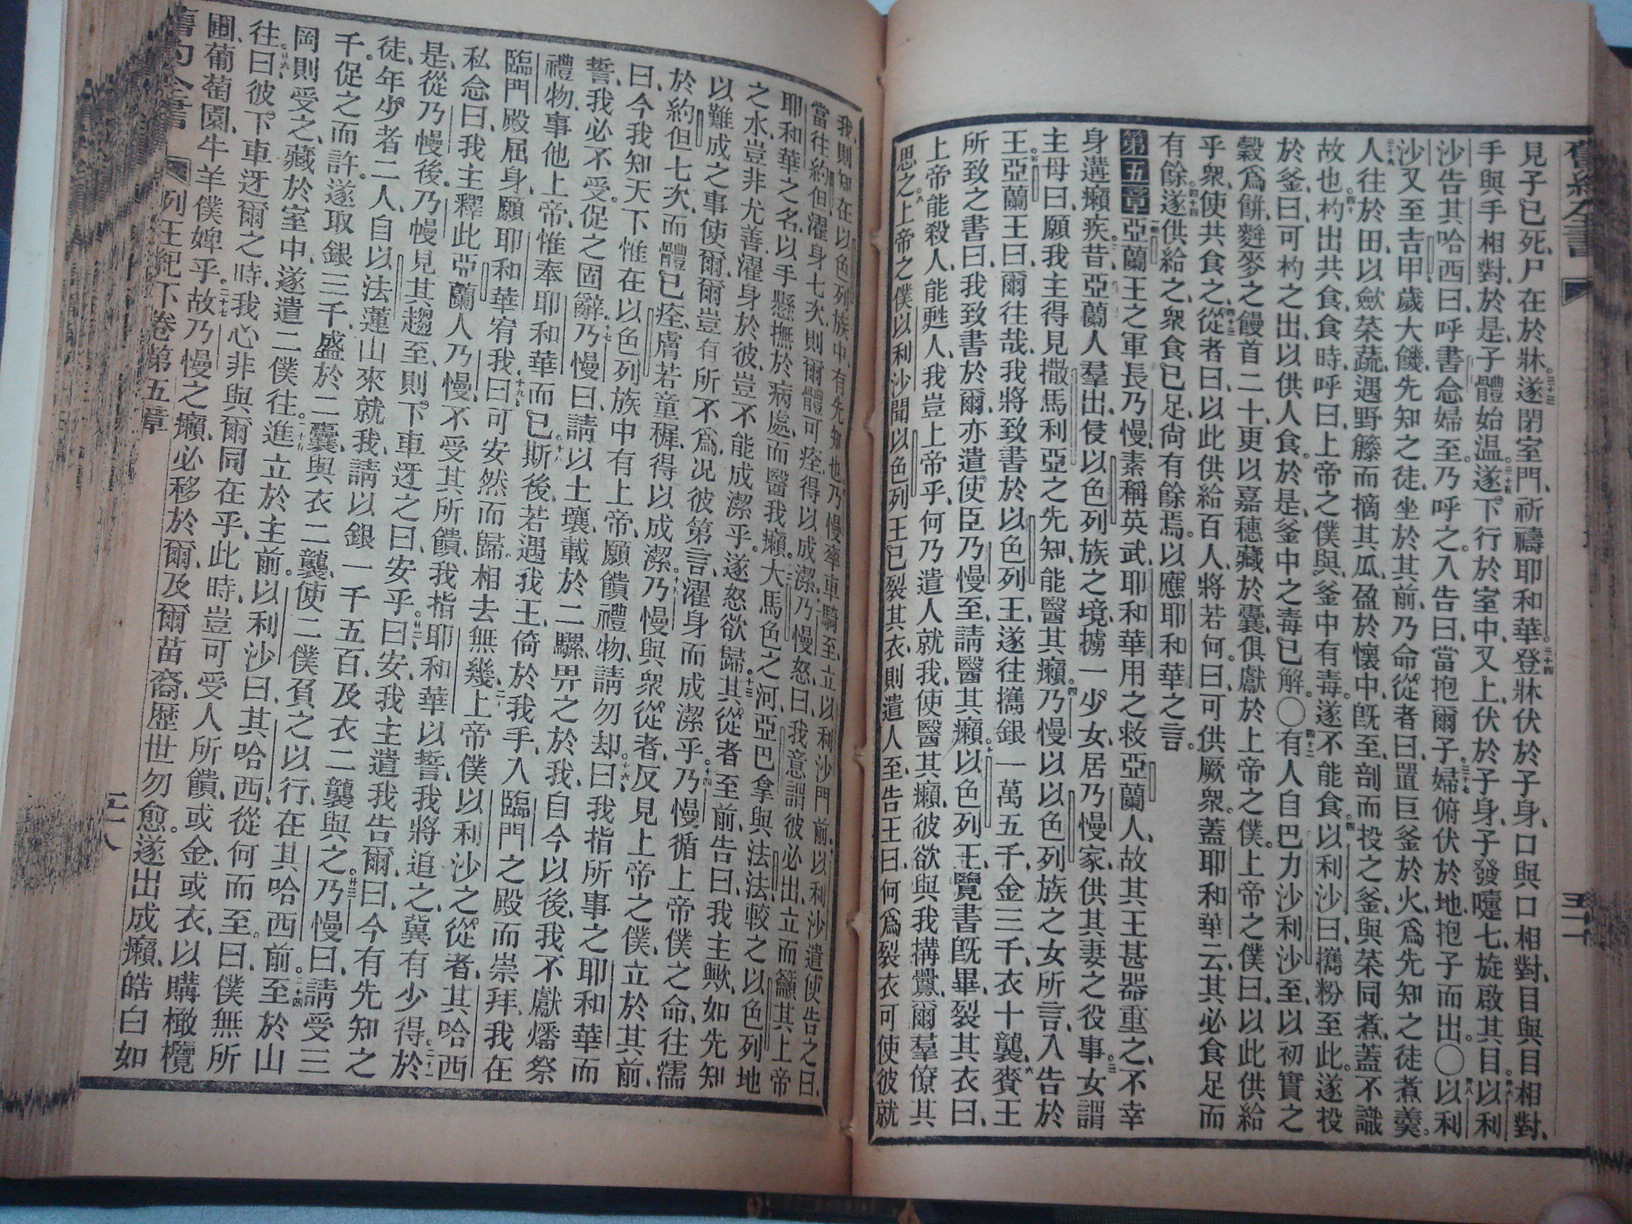 舊約全書
見子已死尸在於牀遂閉室門祈禱耶和華登牀伏於子身口與口相對目與目相對
手與手相對於是子體始温遂下行於室中又上伏於子身子發嚏七旋啟其目以利
沙告其哈西曰呼書念婦至乃呼之入告曰當抱爾子婦俯伏於地抱子而出〇以利
沙又至吉甲歲大饑先知之徒坐於其前乃命從者曰置巨釜於火爲先知之徒煮羹
人往於田以歛菜蔬遇野籐而摘其瓜盈於懷中旣至剖而投之釜與菜同煮蓋不識
故也杓出共食食時呼曰上帝之僕與釜中有毒遂不能食以利沙曰攜粉至此遂投
於釜曰可杓之出以供人食於是釜中之毒已解〇有人自巴力沙利沙至以初實之
穀爲餅麰麥之饅首二十更以嘉穗藏於囊俱獻於上帝之僕上帝之僕曰以此供給
乎衆使共食之從者曰以此供給百人將若何曰可供厥衆蓋耶和華云其必食足而
有餘遂供給之衆食已足尙有餘焉以應耶和華之言
第五章亞蘭王之軍長乃慢素稱英武耶和華用之救亞蘭人故其王甚器重之不幸
身遘癩疾昔亞蘭人羣出侵以色列族之境擄一少女居乃慢家供其妻之役事女謂
主母曰願我主得見撒馬利亞之先知能醫其癩乃慢以以色列族之女所言入告於
王亞蘭王曰爾往哉我將致書於以色列王遂往攜銀一萬五千金三千衣十襲賚王
所致之書曰我致書於爾亦遣使臣乃慢至請醫其癩以色列王覽書旣畢裂其衣曰
上帝能殺人能甦人我豈上帝乎何乃遣人就我使醫其癩彼欲與我搆釁爾羣僚其
思之上帝之僕以利沙聞以色列王已裂其衣則遣人至告王曰何爲裂衣可使彼就
我則知在以色列族中有先知也乃慢率車騎至立以利沙門前以利沙遣使告之曰
當往約但濯身七次則爾體可痊得以成潔乃慢怒曰我意謂彼必出立而籲其上帝
耶和華之名以手懸撫於病處而醫我癩大馬色之河亞巴拿與法法較之以色列地
之水豈非尤善濯身於彼豈不能成潔乎遂怒欲歸其從者至前告曰我主歟如先知
以難成之事使爾爾豈有所不爲况彼第言濯身而成潔乎乃慢循上帝僕之命往濡
於約但七次而體已痊膚若童穉得以成潔乃慢與衆從者反見上帝之僕立於其前
曰今我知天下惟在以色列族中有上帝願饋禮物請勿却曰我指所事之耶和華而
誓我必不受促之固辭乃慢曰請以土壤載於二騾畀之於我自今以後我不獻燔祭
禮物事他上帝惟奉耶和華而已斯後若遇我王倚於我手入臨門之殿而崇拜我在
臨門殿屈身願耶和華宥我曰可安然而歸相去無幾上帝僕以利沙之從者其哈西
私念曰我主釋此亞蘭人乃慢不受其所饋我指耶和華以誓我將追之冀有少得於
是從乃慢後乃慢見其趨至則下車迓之曰安乎曰安我主遣我告爾曰今有先知之
徒年少者二人自以法蓮山來就我請以銀一千五百及衣二襲與之乃慢曰請受三
千促之而許遂取銀三千盛於二囊與衣二襲使二僕負之以行在其哈西前至於山
岡則受之藏於室中遂遣二僕往進立於主前以利沙曰其哈西從何而至曰僕無所
往曰彼下車迓爾之時我心非與爾同在乎此時豈可受人所饋或金或衣以購橄欖
圃葡萄園牛羊僕婢乎故乃慢之癩必移於爾及爾苗裔歷世勿愈遂出成癩皓白如
舊約全書 列王紀下卷第五章